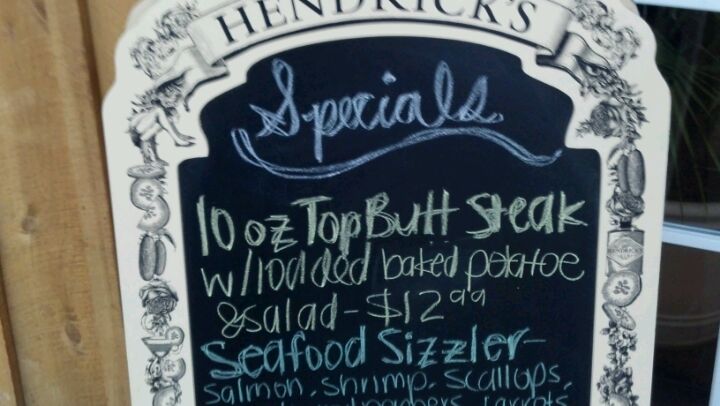 HENDRICK'S
Specials
10 oz Top Butt Steak
w/loaded baked potatoe
& salad - $12.99
Seafood Sizzler -
salmon, shrimp, scallops,
peppers, carrots
HENDRICK'S